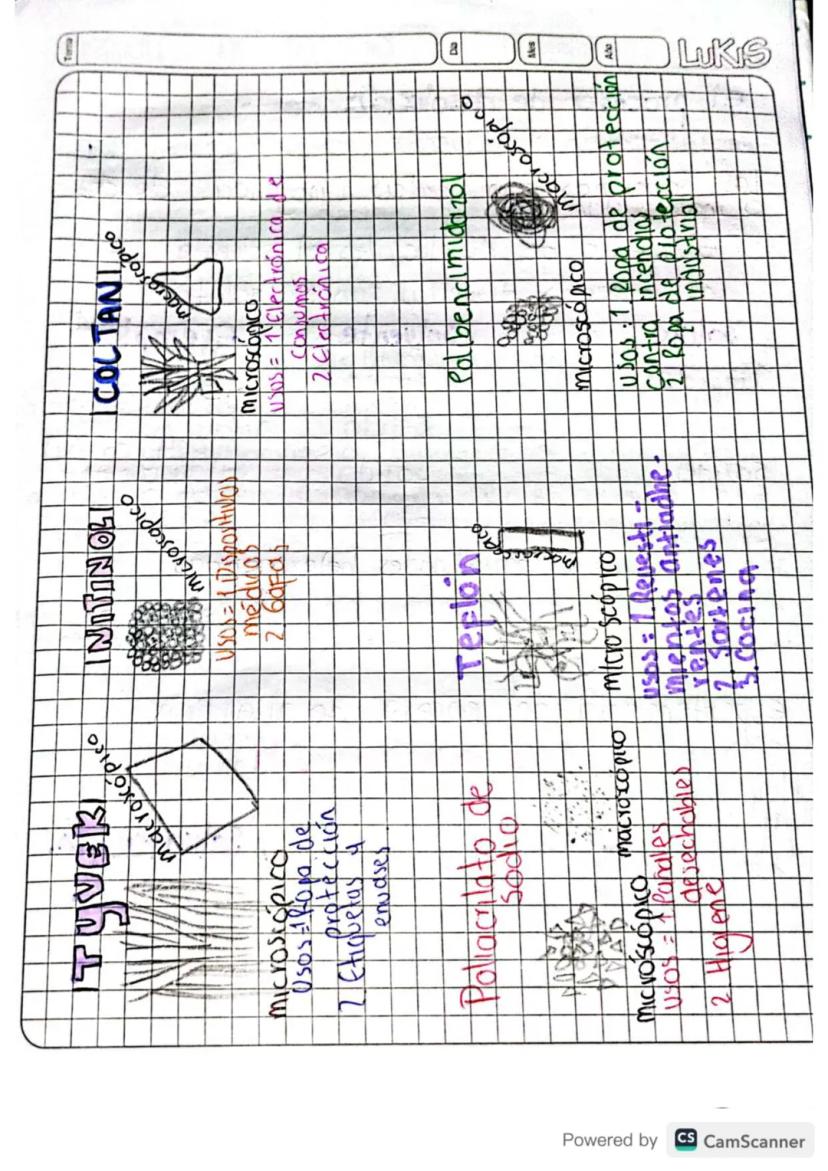 Tema
Día
Mes
Año
LUKAS
TYVEK
macroscópico
microscópico
usos = 1 Ropa de
protección
2. Etiquetas y
envases
NITINOL
microscópico
usos = 1 Dispositivos
médicos
2 Gafas
COLTAN
macroscópico
microscópico
usos = 1 Electrónica de
consumos
2 Electrónica
Poliacrilato de
sodio
macroscópico
microscópico
usos = 1 Pañales
desechables
2 Higiene
Teflón
macroscópico
microscópico
usos = 1. Revesti-
mientos antiadhe-
rentes
2 Sartenes
3. Cocina
Polbencimidazol
macroscópico
microscópico
usos: 1 Ropa de protección
contra incendios
2 Ropa de protección
industrial
Powered by CS CamScanner